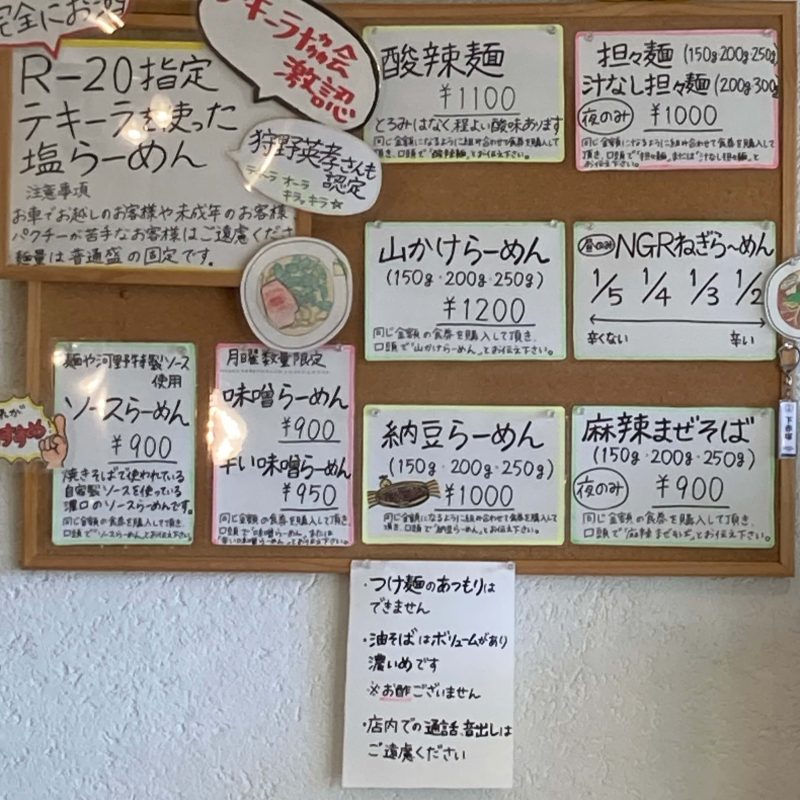 完全にお酒
テキーラ協会
激認
R-20指定
テキーラを使った
塩らーめん
狩野英孝さんも
認定
テキーラ オーラ
キラッキラ☆
注意事項
お車でお越しのお客様や未成年のお客様
パクチーが苦手なお客様はご遠慮くださ
麺量は普通盛の固定です。
酸辣麺
¥1100
とろみはなく程よい酸味あります
同じ金額になるように組み合わせて食券を購入して
頂き、口頭で「酸辣麺」とお伝え下さい。
担々麺(150g・200g・250g)
汁なし担々麺(200g・300g
夜のみ ¥1000
同じ金額になるように組み合わせて食券を購入して
頂き、口頭で「担々麺」または「汁なし担々麺」と
お伝え下さい。
山かけらーめん
(150g・200g・250g)
¥1200
同じ金額の食券を購入して頂き、
口頭で「山かけらーめん」とお伝え下さい。
昼のみ NGRねぎら〜めん
1/5 1/4 1/3 1/2
辛くない 辛い
麺や河野特製ソース
使用
ソースらーめん
¥900
焼きそばで使われている
自家製ソースを使っている
濃口のソースらーめんです。
同じ金額の食券を購入して頂き、
口頭で「ソースらーめん」とお伝え下さい。
月曜数量限定
味噌らーめん
¥900
辛い味噌らーめん
¥950
同じ金額の食券を購入して頂き、
口頭で「味噌らーめん」または
「辛い味噌らーめん」とお伝え下さい。
納豆らーめん
(150g・200g・250g)
¥1000
同じ金額になるように組み合わせて食券を購入して
頂き、口頭で「納豆らーめん」とお伝え下さい。
麻辣まぜそば
(150g・200g・250g)
夜のみ ¥900
同じ金額の食券を購入して頂き、
口頭で「麻辣まぜそば」とお伝え下さい。
下赤塚
・つけ麺のあつもりは
できません
・油そばはボリュームがあり
濃いめです
※お酢ございません
・店内での通話、音出しは
ご遠慮ください